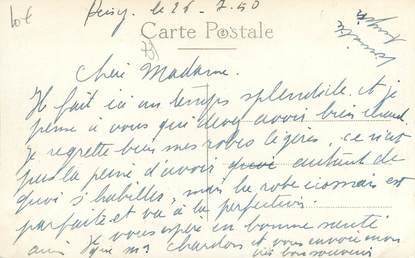 le 26-7-50
Carte Postale
Chère Madame.
Il fait ici un temps splendide et je
pense à vous qui devez avoir bien chaud.
Je regrette bien mes robes légères, ce n'est
pas la peine d'avoir autant de
quoi s'habiller, mais la robe est
parfaite et va à la perfection.
Je vous espère en bonne santé
ainsi que Mr Chardon et vous envoie mon
bon souvenir